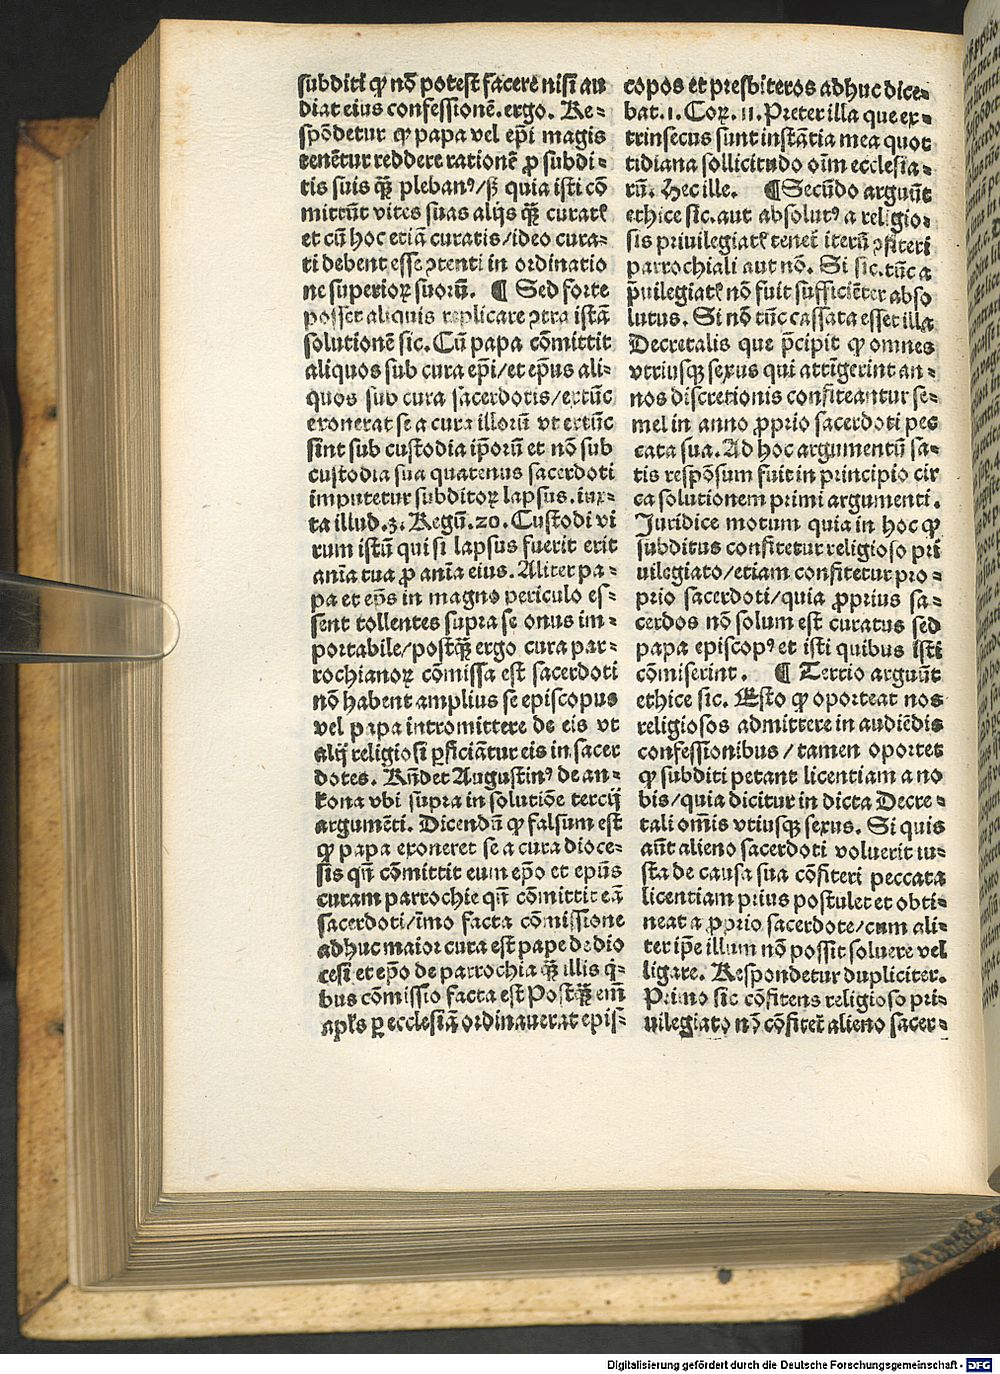 subditi ꝙ nō potest facere nisi au
diat eius confessionē. ergo. Re⸗
spōdetur ꝙ papa vel epī magis
tenētur reddere rationē ꝓ subdi⸗
tis suis qȝ̄ plebanꝰ/sȝ quia isti cō
mittūt vites suas alijs qȝ̄ curatꝭ
et cū hoc etiā curatis/ideo cura⸗
ti debent esse ꝯtenti in ordinatio
ne superioꝝ suorū. ¶ Sed forte
posset aliquis replicare ꝯtra istā
solutionē sic. Cū papa cōmittit
aliquos sub cura epī/et epūs ali⸗
quos sub cura sacerdotis/extūc
exonerat se a cura illorū vt extūc
sint sub custodia ip̄orū et nō sub
custodia sua quatenus sacerdoti
imputetur subditoꝝ lapsus. iux⸗
ta illud. 3. Regū. 20. Custodi vi
rum istū qui si lapsus fuerit erit
anīa tua ꝓ anīa eius. Aliter pa⸗
pa et ep̄s in magno periculo es⸗
sent tollentes supra se onus im⸗
portabile/postqȝ̄ ergo cura par⸗
rochianoꝝ cōmissa est sacerdoti
nō habent amplius se episcopus
vel papa intromittere de eis vt
alij religiosi ꝑficiātur eis in sacer
dotes. Rn̄det Augustinꝰ de an⸗
kona vbi supra in solutiōe tercij
argumēti. Dicendū ꝙ falsum est
ꝙ papa exoneret se a cura dioce⸗
sis qn̄ cōmittit eum ep̄o et epūs
curam parrochie qn̄ cōmittit eā
sacerdoti/īmo facta cōmissione
adhuc maior cura est pape de dio
cesi et ep̄o de parrochia qȝ̄ illis q̇⸗
bus cōmissio facta est Postqȝ̄ em̄
apl̄s ꝑ ecclesiā ordinauerat epis⸗
copos et presbiteros adhuc dice⸗
bat. 1. Coꝝ. 11. Preter illa que ex⸗
trinsecus sunt instātia mea quot
tidiana sollicitudo oīm ecclesia⸗
rū. Hec ille. ¶ Secūdo arguūt
ethice sic. aut absolutꝰ a religio⸗
sis priuilegiatꝭ tenet̄ iterū ꝯfiteri
parrochiali aut nō. Si sic. tūc a
p̄uilegiatꝭ nō fuit sufficiēter abso
lutus. Si nō tūc cassata esset illa
Decretalis que p̄cipit ꝙ omnes
vtriusqȝ sexus qui attīgerint an⸗
nos discretionis confiteantur se⸗
mel in anno ꝓprio sacerdoti pec
cata sua. Ad hoc argumentū sa⸗
tis respōsum fuit in principio cir
ca solutionem primi argumenti.
Juridice motum quia in hoc ꝙ
subditus confitetur religioso pri
uilegiato/etiam confitetur pro⸗
prio sacerdoti/quia ꝓprius sa⸗
cerdos nō solum est curatus sed
papa episcopꝰ et isti quibus isti
cōmiserint. ¶ Tertio arguūt
ethice sic. Esto ꝙ oporteat nos
religiosos admittere in audiēdis
confessionibus/tamen oportet
ꝙ subditi petant licentiam a no
bis/quia dicitur in dicta Decre⸗
tali om̄is vtriusqȝ sexus. Si quis
aūt alieno sacerdoti voluerit iu⸗
sta de causa sua cōfiteri peccata
licentiam prius postulet et obti⸗
neat a ꝓprio sacerdote/cum ali⸗
ter ip̄e illum nō possit soluere vel
ligare. Respondetur dupliciter.
Primo sic cōfitens religioso pri⸗
uilegiato nō cōfitet̄ alieno sacer⸗
Digitalisierung gefördert durch die Deutsche Forschungsgemeinschaft - DFG